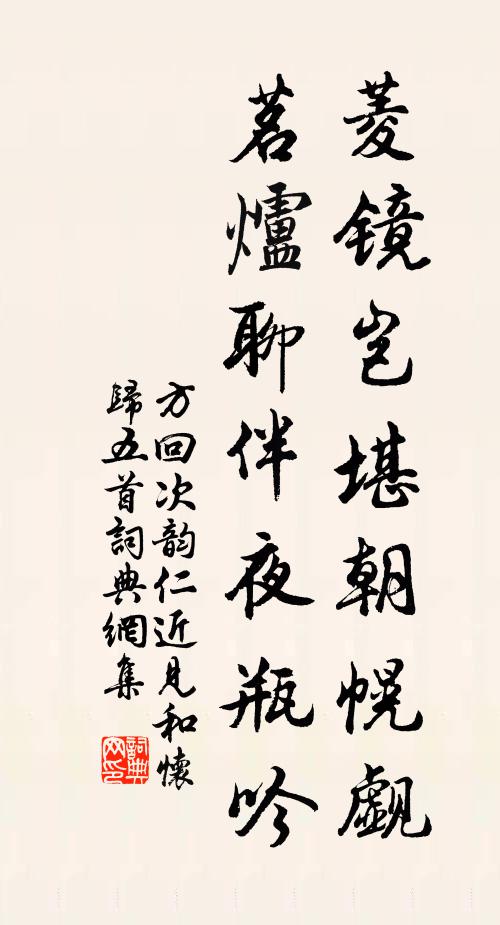 菱鏡岂堪朝幌覷
茗爐聊伴夜瓶吟
方回次韵仁近見和懷
歸五首詞典網集
詞典
网印